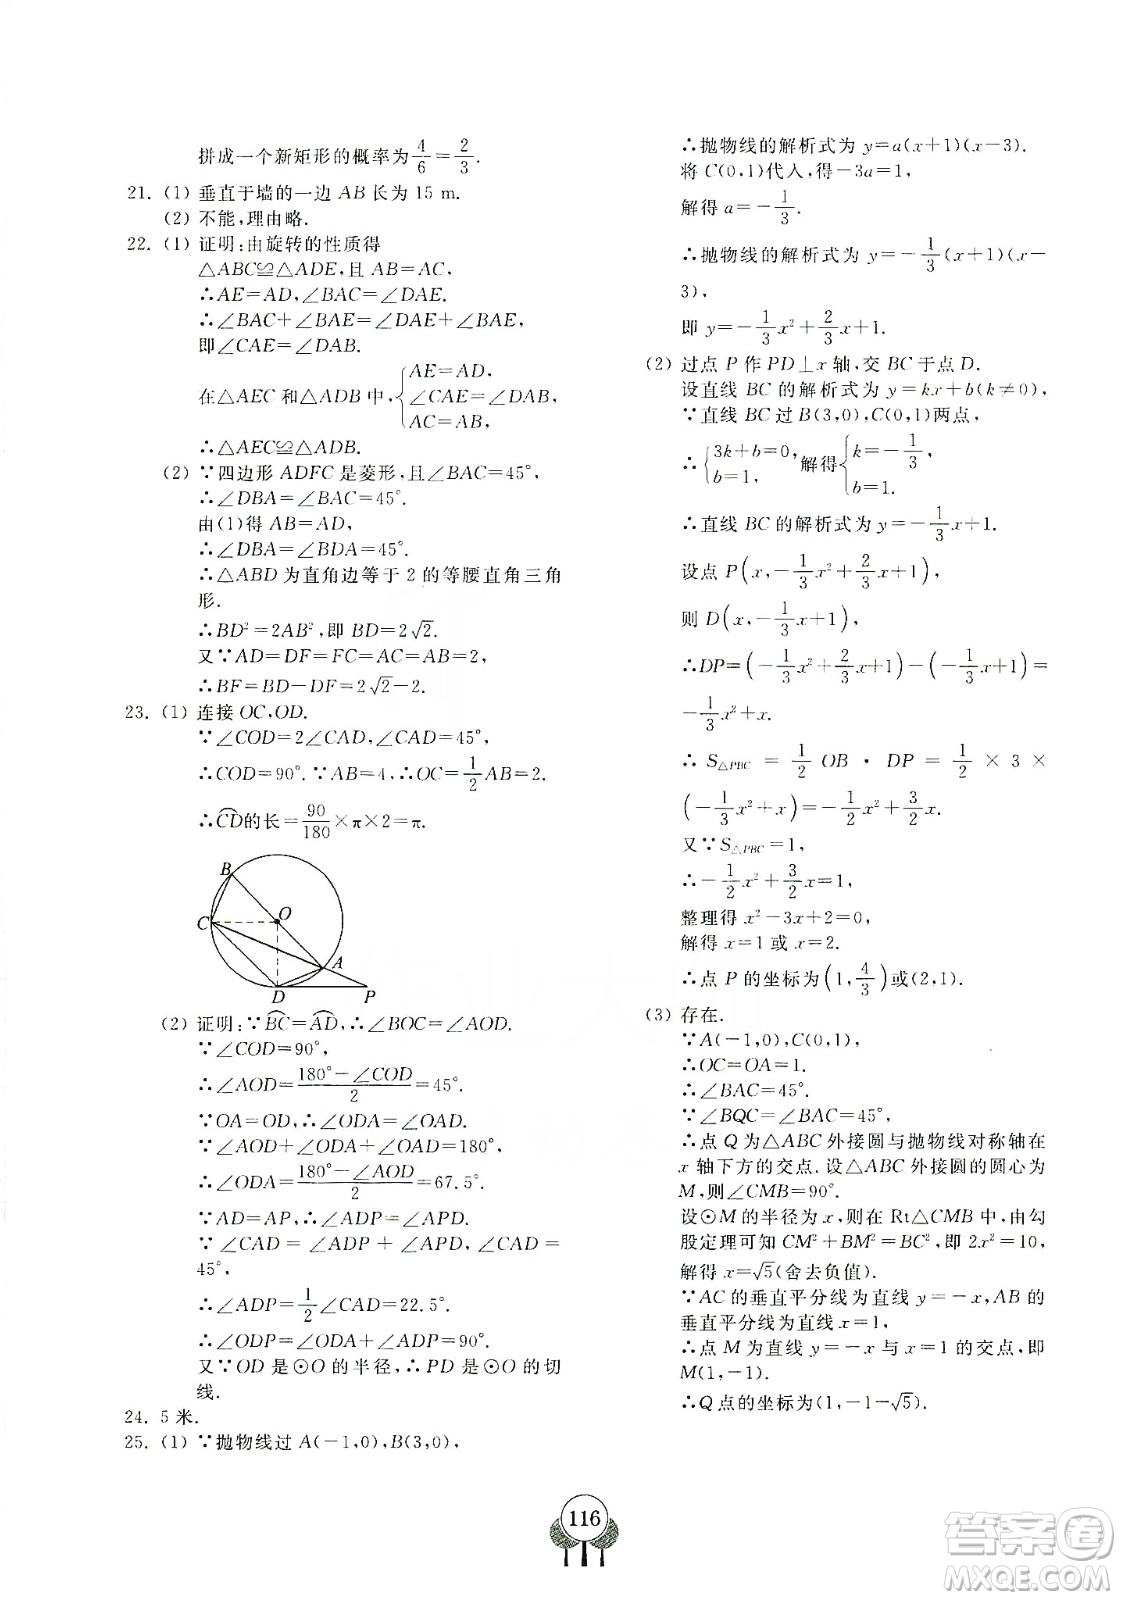 拼成一个新矩形的概率为4/6=2/3.
21. (1) 垂直于墙的一边 AB 长为 15 m.
(2) 不能,理由略.
22. (1) 证明:由旋转的性质得
△ABC≌△ADE,且AB=AC,
∴AE=AD,∠BAC=∠DAE.
∴∠BAC+∠BAE=∠DAE+∠BAE,
即∠CAE=∠DAB.
在△AEC 和△ADB 中,{AE=AD,
∠CAE=∠DAB,
AC=AB,
∴△AEC≌△ADB.
(2) ∵四边形 ADFC 是菱形,且∠BAC=45°,
∴∠DBA=∠BAC=45°.
由(1)得 AB=AD,
∴∠DBA=∠BDA=45°.
∴△ABD 为直角边等于 2 的等腰直角三角
形.
∴BD²=2AB²,即 BD=2√2.
又∵AD=DF=FC=AC=AB=2,
∴BF=BD-DF=2√2-2.
23. (1) 连接 OC,OD.
∵∠COD=2∠CAD,∠CAD=45°,
∴∠COD=90°.∵AB=4,∴OC=1/2AB=2.
∴⌒CD的长=90/180×π×2=π.
B
C
O
A
D
P
(2) 证明:∵⌒BC=⌒AD,∴∠BOC=∠AOD.
∵∠COD=90°,
∴∠AOD=(180°-∠COD)/2=45°.
∵OA=OD,∴∠ODA=∠OAD.
∵∠AOD+∠ODA+∠OAD=180°,
∴∠ODA=(180°-∠AOD)/2=67.5°.
∵AD=AP,∴∠ADP=∠APD.
∵∠CAD=∠ADP+∠APD,∠CAD=
45°,
∴∠ADP=1/2∠CAD=22.5°.
∴∠ODP=∠ODA+∠ADP=90°.
又∵OD 是⊙O 的半径,∴PD 是⊙O 的切
线.
24. 5 米.
25. (1) ∵抛物线过 A(-1,0),B(3,0),
∴抛物线的解析式为 y=a(x+1)(x-3).
将 C(0,1)代入,得-3a=1,
解得 a=-1/3.
∴抛物线的解析式为 y=-1/3(x+1)(x-
3),
即 y=-1/3x²+2/3x+1.
(2) 过点 P 作 PD⊥x 轴,交 BC 于点 D.
设直线 BC 的解析式为 y=kx+b(k≠0),
∵直线 BC 过 B(3,0),C(0,1)两点,
∴{3k+b=0,b=1,解得{k=-1/3,b=1.
∴直线 BC 的解析式为 y=-1/3x+1.
设点 P(x,-1/3x²+2/3x+1),
则 D(x,-1/3x+1),
∴DP=(-1/3x²+2/3x+1)-(-1/3x+1)=
-1/3x²+x.
∴S△PBC=1/2OB·DP=1/2×3×
(-1/3x²+x)=-1/2x²+3/2x.
又∵S△PBC=1,
∴-1/2x²+3/2x=1,
整理得 x²-3x+2=0,
解得 x=1 或 x=2.
∴点 P 的坐标为(1,4/3)或(2,1).
(3) 存在.
∵A(-1,0),C(0,1),
∴OC=OA=1.
∴∠BAC=45°.
∵∠BQC=∠BAC=45°,
∴点 Q 为△ABC 外接圆与抛物线对称轴在
x 轴下方的交点.设△ABC 外接圆的圆心为
M,则∠CMB=90°.
设⊙M 的半径为 x,则在 Rt△CMB 中,由勾
股定理可知 CM²+BM²=BC²,即 2x²=10,
解得 x=√5(舍去负值).
∵AC 的垂直平分线为直线 y=-x,AB 的
垂直平分线为直线 x=1,
∴点 M 为直线 y=-x 与 x=1 的交点,即
M(1,-1).
∴Q 点的坐标为(1,-1-√5).
116
答案圈
MXQE.COM